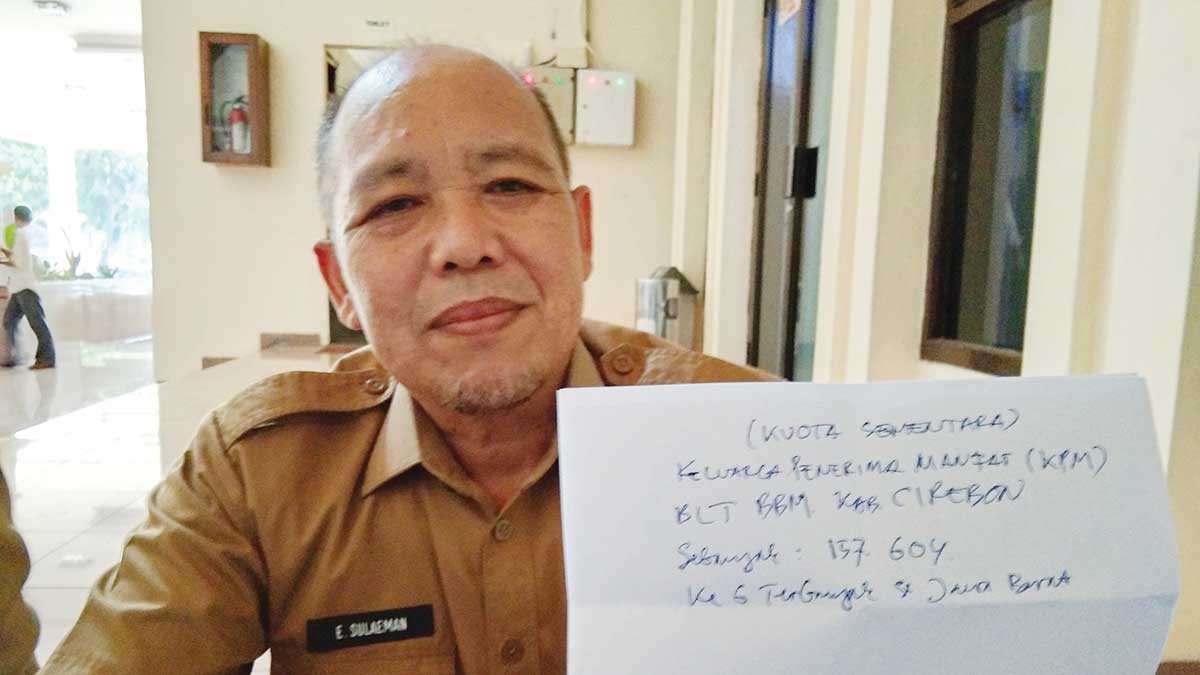 TOILET
E. SULAEMAN
(KUOTA SEMENTARA)
KELUARGA PENERIMA MANFAT (KPM)
BLT BBM KAB. CIREBON
Sebanyak : 157 604
Ke 6 Terbanyak di Jawa Barat